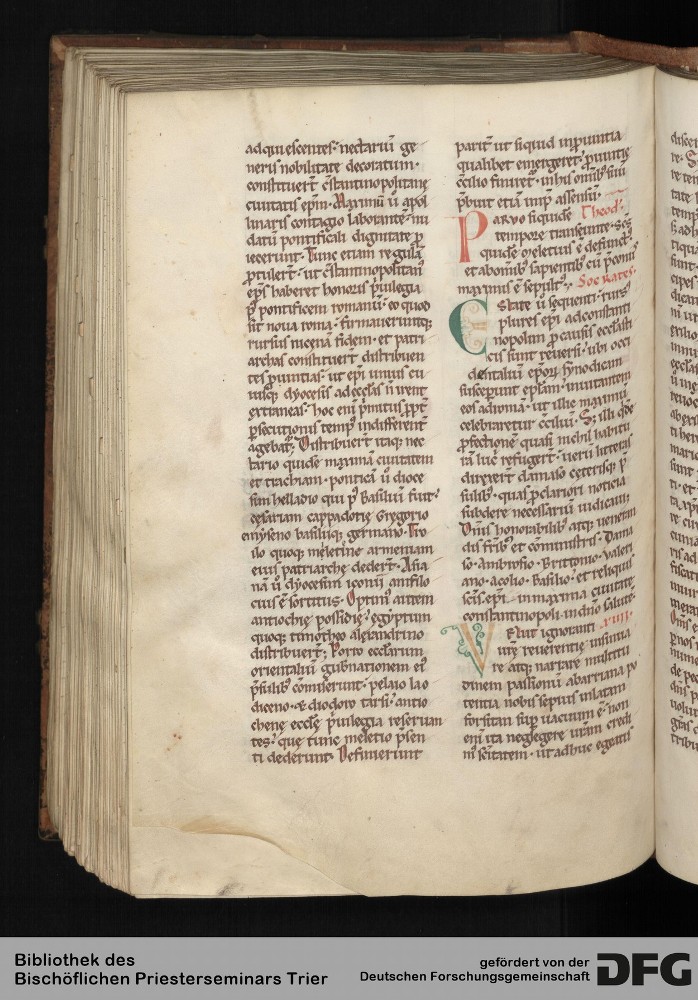 adquiescentes. nectariū ge
neris nobilitate decoratum.
constituerť c̄stantinopolitane
ciuitatis ep̄m. Maximū ũ apol
linaris contagio laborantē. nu
datū pontificali dignitate ꝓ
iecerunt. Tunc etiam regulā
ꝓtulerť. ut c̄stantinopolitan᷒
ep̄s haberet honoris p̄uilegia
p᷒ pontificem romanū. eo quod
sit noua roma. firmaueruntq;
rursus nicenā fidem. et patri
archas constituerť distribuen
tes ꝓuintias. ut ep̄i unius cu
iusq; dyocesis ad eccl̄as ñ irent
extraneas. hoc eni p̄mitus ꝓpť
ꝑsecutionis temp᷒ indifferent̄
agebať. Distribuerť itaq; nec
tario quidē maximā ciuitatem
et trachiam. ponticā ũ dioce
sim helladio qui p᷒ basiliū fuit
cesariam cappadocie. Gregorio
nyseno basiliiq; germano. Tro
ilo quoq; meletine armeniam
eius patriarche dederť. Asia
nā ũ dyocesim iconii amfilo
cius ē sortitus. Optim᷒ autem
antiochie possidiẹ. egyptum
quoq; timotheo alexandrino
distribuerť. Porro eccl̄arum
orientaliū gubnationem ei᷒
p̄sulib᷒ cōmiserunt. pelaio lao
diceno. & diodoro tarsi. antio
chenę eccl̄ę p̄uilegia reseruan
tes. que tunc meletio p̄sen
ti dederunt. Definierunt
parit̄ ut siquid in ꝓuintia
qualibet emergeret. ꝓuintie
c̄cilio finireť. in his omib᷒ suū
p̄buit etiā imp̄ assensū.
Paruo siquidē Theod.
tempore transeunte. sc̄s
quidē meletius ē defunct᷒
et abomib᷒ sapientib᷒ cū p̄coniis
maximis ē sepult᷒. Socrates.
Estate ũ sequenti. rurs᷒
plures ep̄i ad constanti
nopolim ꝓ causis eccl̄asti
cis sunt reuersi. ubi occi
dentaliū ep̄oꝝ synodicam
susceperunt epl̄am. inuitantem
eos ad roma. ut illic maximū
celebraretur c̄ciliū. Sȝ illi qđē
ꝓfectionē quasi nichil habitu
rā luc̄ refugerť. uerū litteras
direxerť damaso ceterisq; p̄
sulib᷒. quas ꝓ clariori noticia
subdere necessariū iudicaui.
Dn̄is honorabilib᷒ atq; ueneran
dis frib᷒ et cōministris. Dama
so. Ambrosio. Brittonio. Valeri
ano. acolio. Basilio. et reliquis
sc̄is ep̄i. in maxima ciuitate
constantinopoli in dn̄o salutē.
Velut ignoranti XIIII.
ur̄ę reuerentię insinua
re atq; narrare multitu
dinem passionū abarriana po
tentia nobis sepius inlatam
forsitan suꝑ uacuum ē. non
eni ita neglegere ur̄am credi
m᷒ sc̄itatem. ut adhuc egeatis
Bibliothek des
Bischöflichen Priesterseminars Trier
gefördert von der
Deutschen Forschungsgemeinschaft DFG